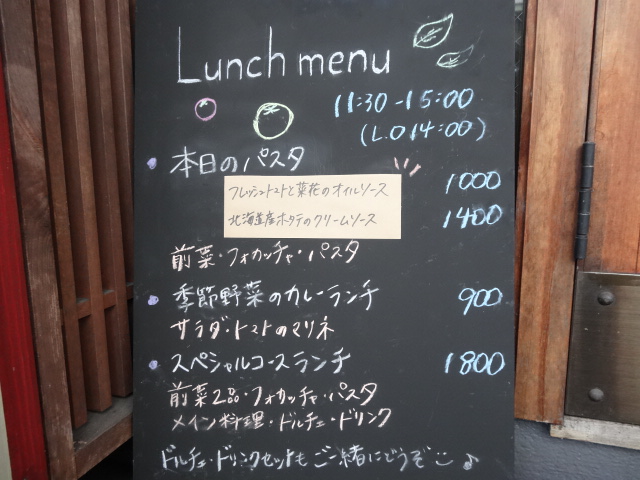 Lunch menu
11:30-15:00
(L.O 14:00)
本日のパスタ
フレッシュトマトと菜花のオイルソース 1000
北海道産ホタテのクリームソース 1400
前菜・フォカッチャ・パスタ
季節野菜のカレーランチ 900
サラダ・トマトのマリネ
スペシャルコースランチ 1800
前菜2品・フォカッチャ・パスタ
メイン料理・ドルチェ・ドリンク
ドルチェ・ドリンクセットもご一緒にどうぞ♪